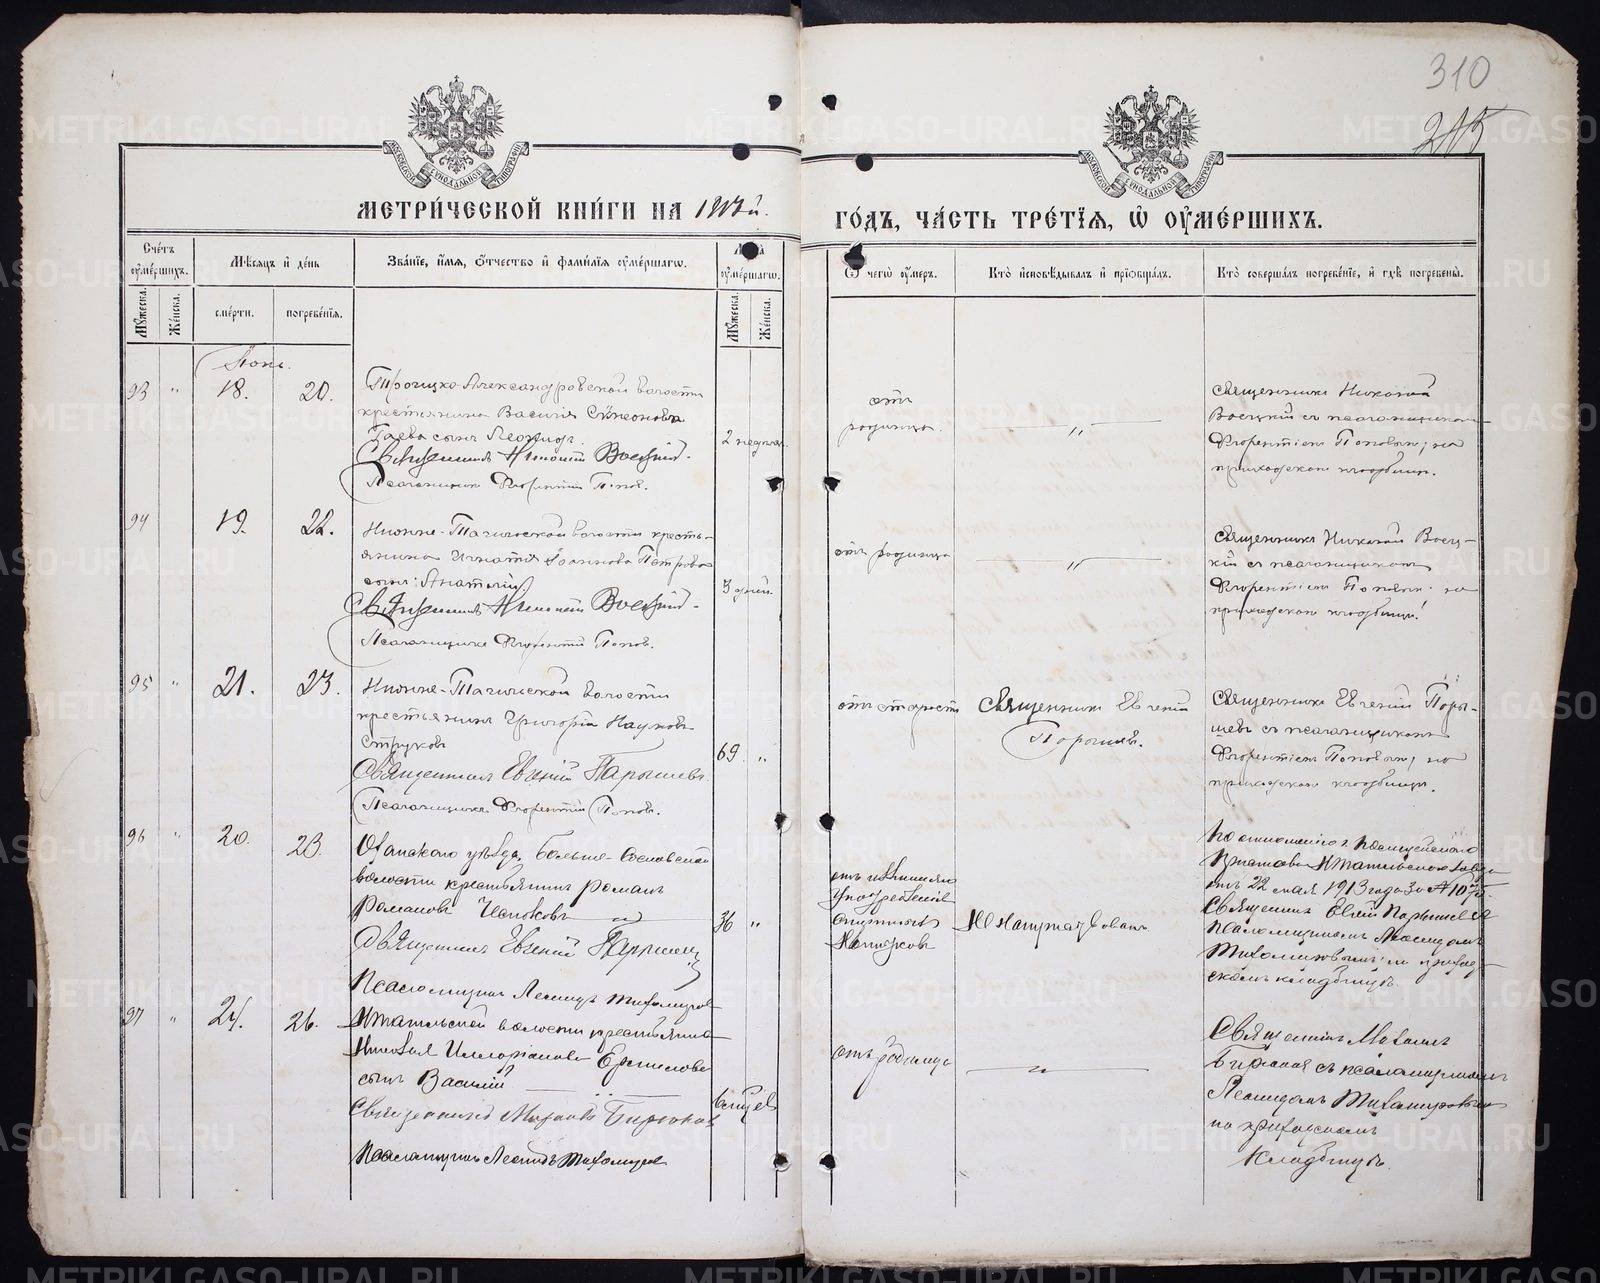 310
205
МЕТРИ́ЧЕСКОЙ КНИ́ГИ НА 1913й.
ГО́ДЪ, ЧА́СТЬ ТРЕ́ТІЯ, Ѡ ОУМЕ́РШИХЪ.
Сче́тъ оуме́ршихъ.
Мѣсяцъ и де́нь
Зва́ніе, и́мя, о́тчество и фами́лія оуме́ршагѡ.
оуме́ршагѡ.
Ѿ чегѡ̀ оу́меръ.
Кто̀ исповѣ́дывалъ и пріобща́лъ.
Кто̀ соверша́лъ погребе́ніе, и гдѣ̀ погребены̀.
Му́жеска.
Же́нска.
сме́рти.
погребе́нія.
Му́жеска.
Же́нска.
Іюнь.
93 " 18. 20.
Троицко-Александровской волости
крестьянина Василія Сѵмеонова
Гаева сынъ Леонидъ.
Священникъ Николай Воецкій.
Псаломщикъ Флорентій Поповъ.
2 недѣли.
отъ
родимца.
"
Священникъ Николай
Воецкій съ псаломщикомъ
Флорентіемъ Поповымъ; на
приходскомъ кладбищѣ.
94 19. 22.
Нижне-Тагильской волости кресть-
янина Игнатія Іоаннова Петрова
сынъ: Анатолій
Священникъ Николай Воецкій.
Псаломщикъ Флорентій Поповъ.
дней.
отъ родимца
"
Священникъ Николай Воец-
кій съ псаломщикомъ
Флорентіемъ Поповымъ на
приходскомъ кладбищѣ!
95 " 21. 23.
Нижне-Тагильской волости
крестьянинъ Григорій Наумовъ
Струковъ
Священникъ Евгеній Парышевъ.
Псаломщикъ Флорентій Поповъ.
69 "
отъ старости
Священникъ Евгеній
Порышевъ.
Священникъ Евгеній Поры-
шевъ съ псаломщикомъ
Флорентіемъ Поповымъ; на
приходскомъ кладбищѣ.
96 " 20. 23.
Оханскаго уѣзда, Больше-Сосновской
волости крестьянинъ Романъ
Романовъ
Священникъ Евгеній Парышевъ
Псаломщикъ Леонидъ Тихомировъ
36 "
отъ излишняго
употребленія
спиртныхъ
напитковъ
Не напутствованъ.
По отношенію г. Полицейскаго
Пристава Н Тагильскаго завода
отъ 22 1913 года за №
Священникъ Евгеній Парышевъ съ
псаломщикомъ Леонидомъ
Тихомировымъ; на приход-
скомъ кладбищѣ.
97 " 24. 26.
Н Тагильской волости крестьянина
Николая Илларіонова Ермилова
сынъ Василій
Священникъ Михаилъ Бирюковъ
Псаломщикъ Леонидъ Тихомировъ
отъ родимца
"
Священникъ Михаилъ
Бирюковъ съ псаломщикомъ
Леонидомъ Тихомировымъ
на приходскомъ
кладбищѣ.
METRIKI.GASO-URAL.RU